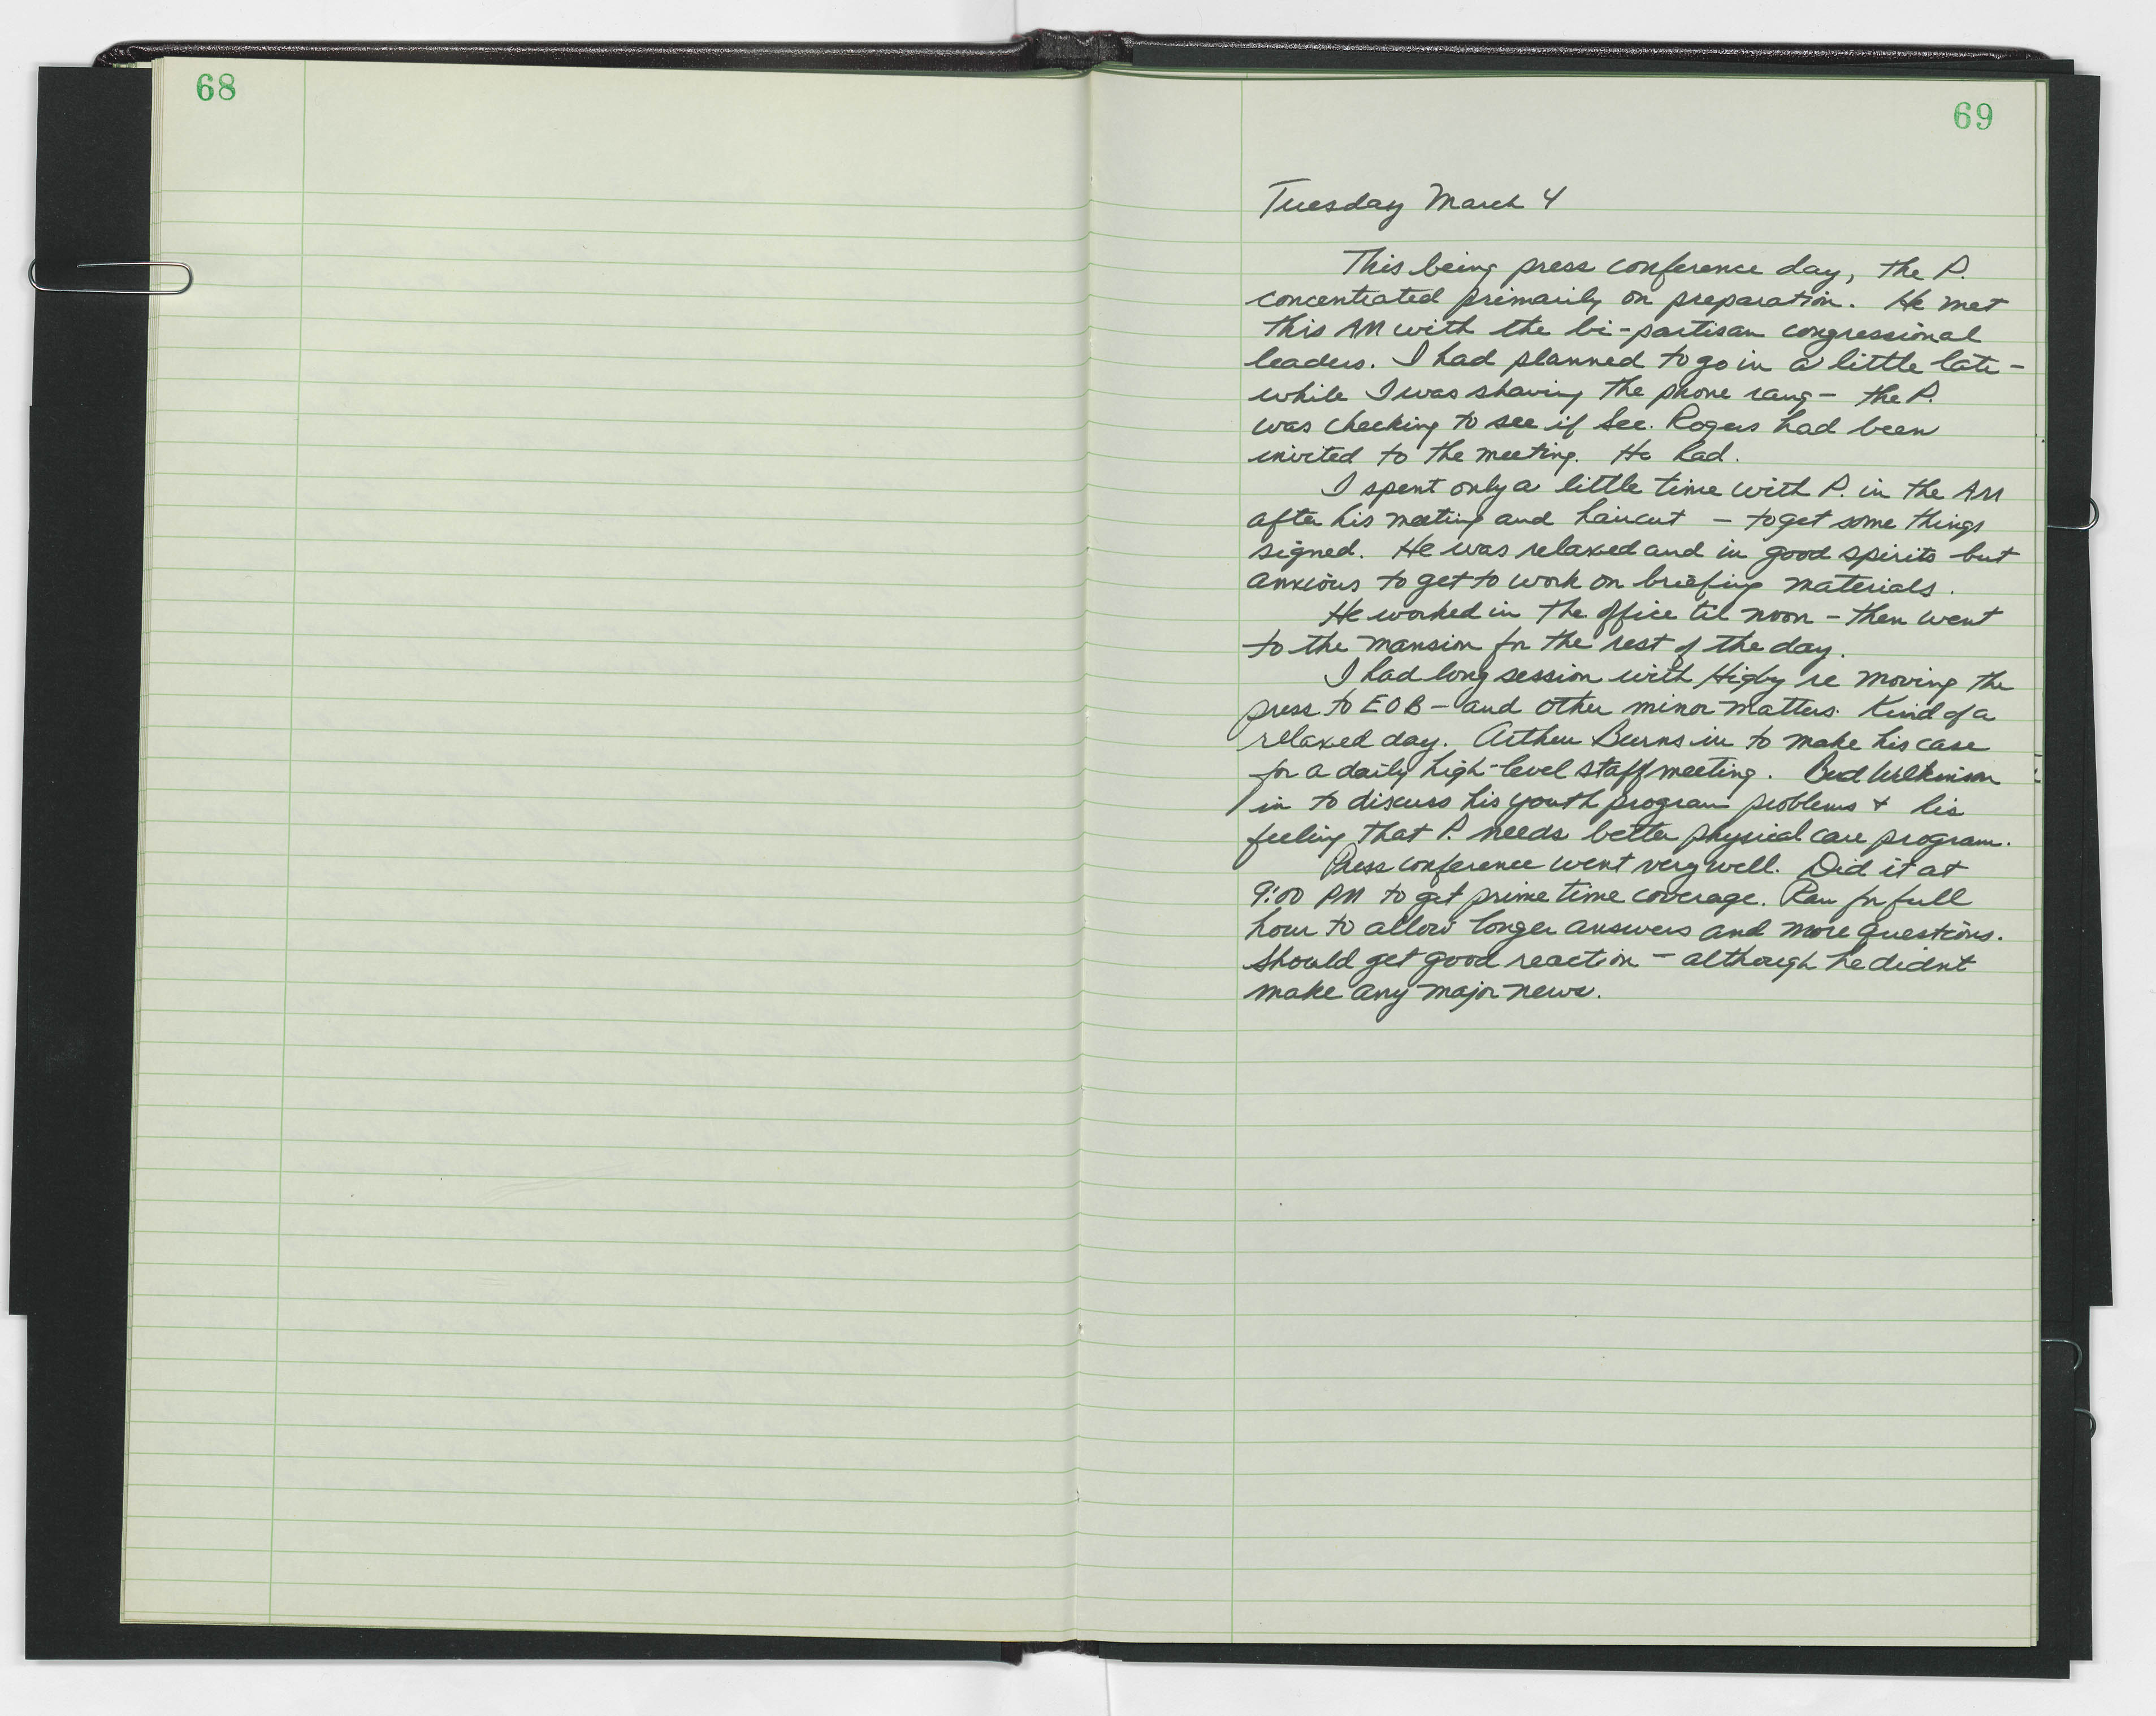 68
69
Tuesday March 4
This being press conference day, the P.
concentrated primarily on preparation. He met
this AM with the bi-partisan congressional
leaders. I had planned to go in a little late -
while I was shaving the phone rang - the P.
was checking to see if Sec. Rogers had been
invited to the meeting. He had.
I spent only a little time with P. in the AM
after his meeting and haircut - to get some things
signed. He was relaxed and in good spirits but
anxious to get to work on briefing materials.
He worked in the office til noon - then went
to the mansion for the rest of the day.
I had long session with Higby re moving the
press to EOB - and other minor matters. Kind of a
relaxed day. Arthur Burns in to make his case
for a daily high-level staff meeting. Bud Wilkinson
in to discuss his youth program problems + his
feeling that P. needs better physical care program.
Press conference went very well. Did it at
9:00 PM to get prime time coverage. Ran for full
hour to allow longer answers and more questions.
Should get good reaction - although he didn't
make any major news.